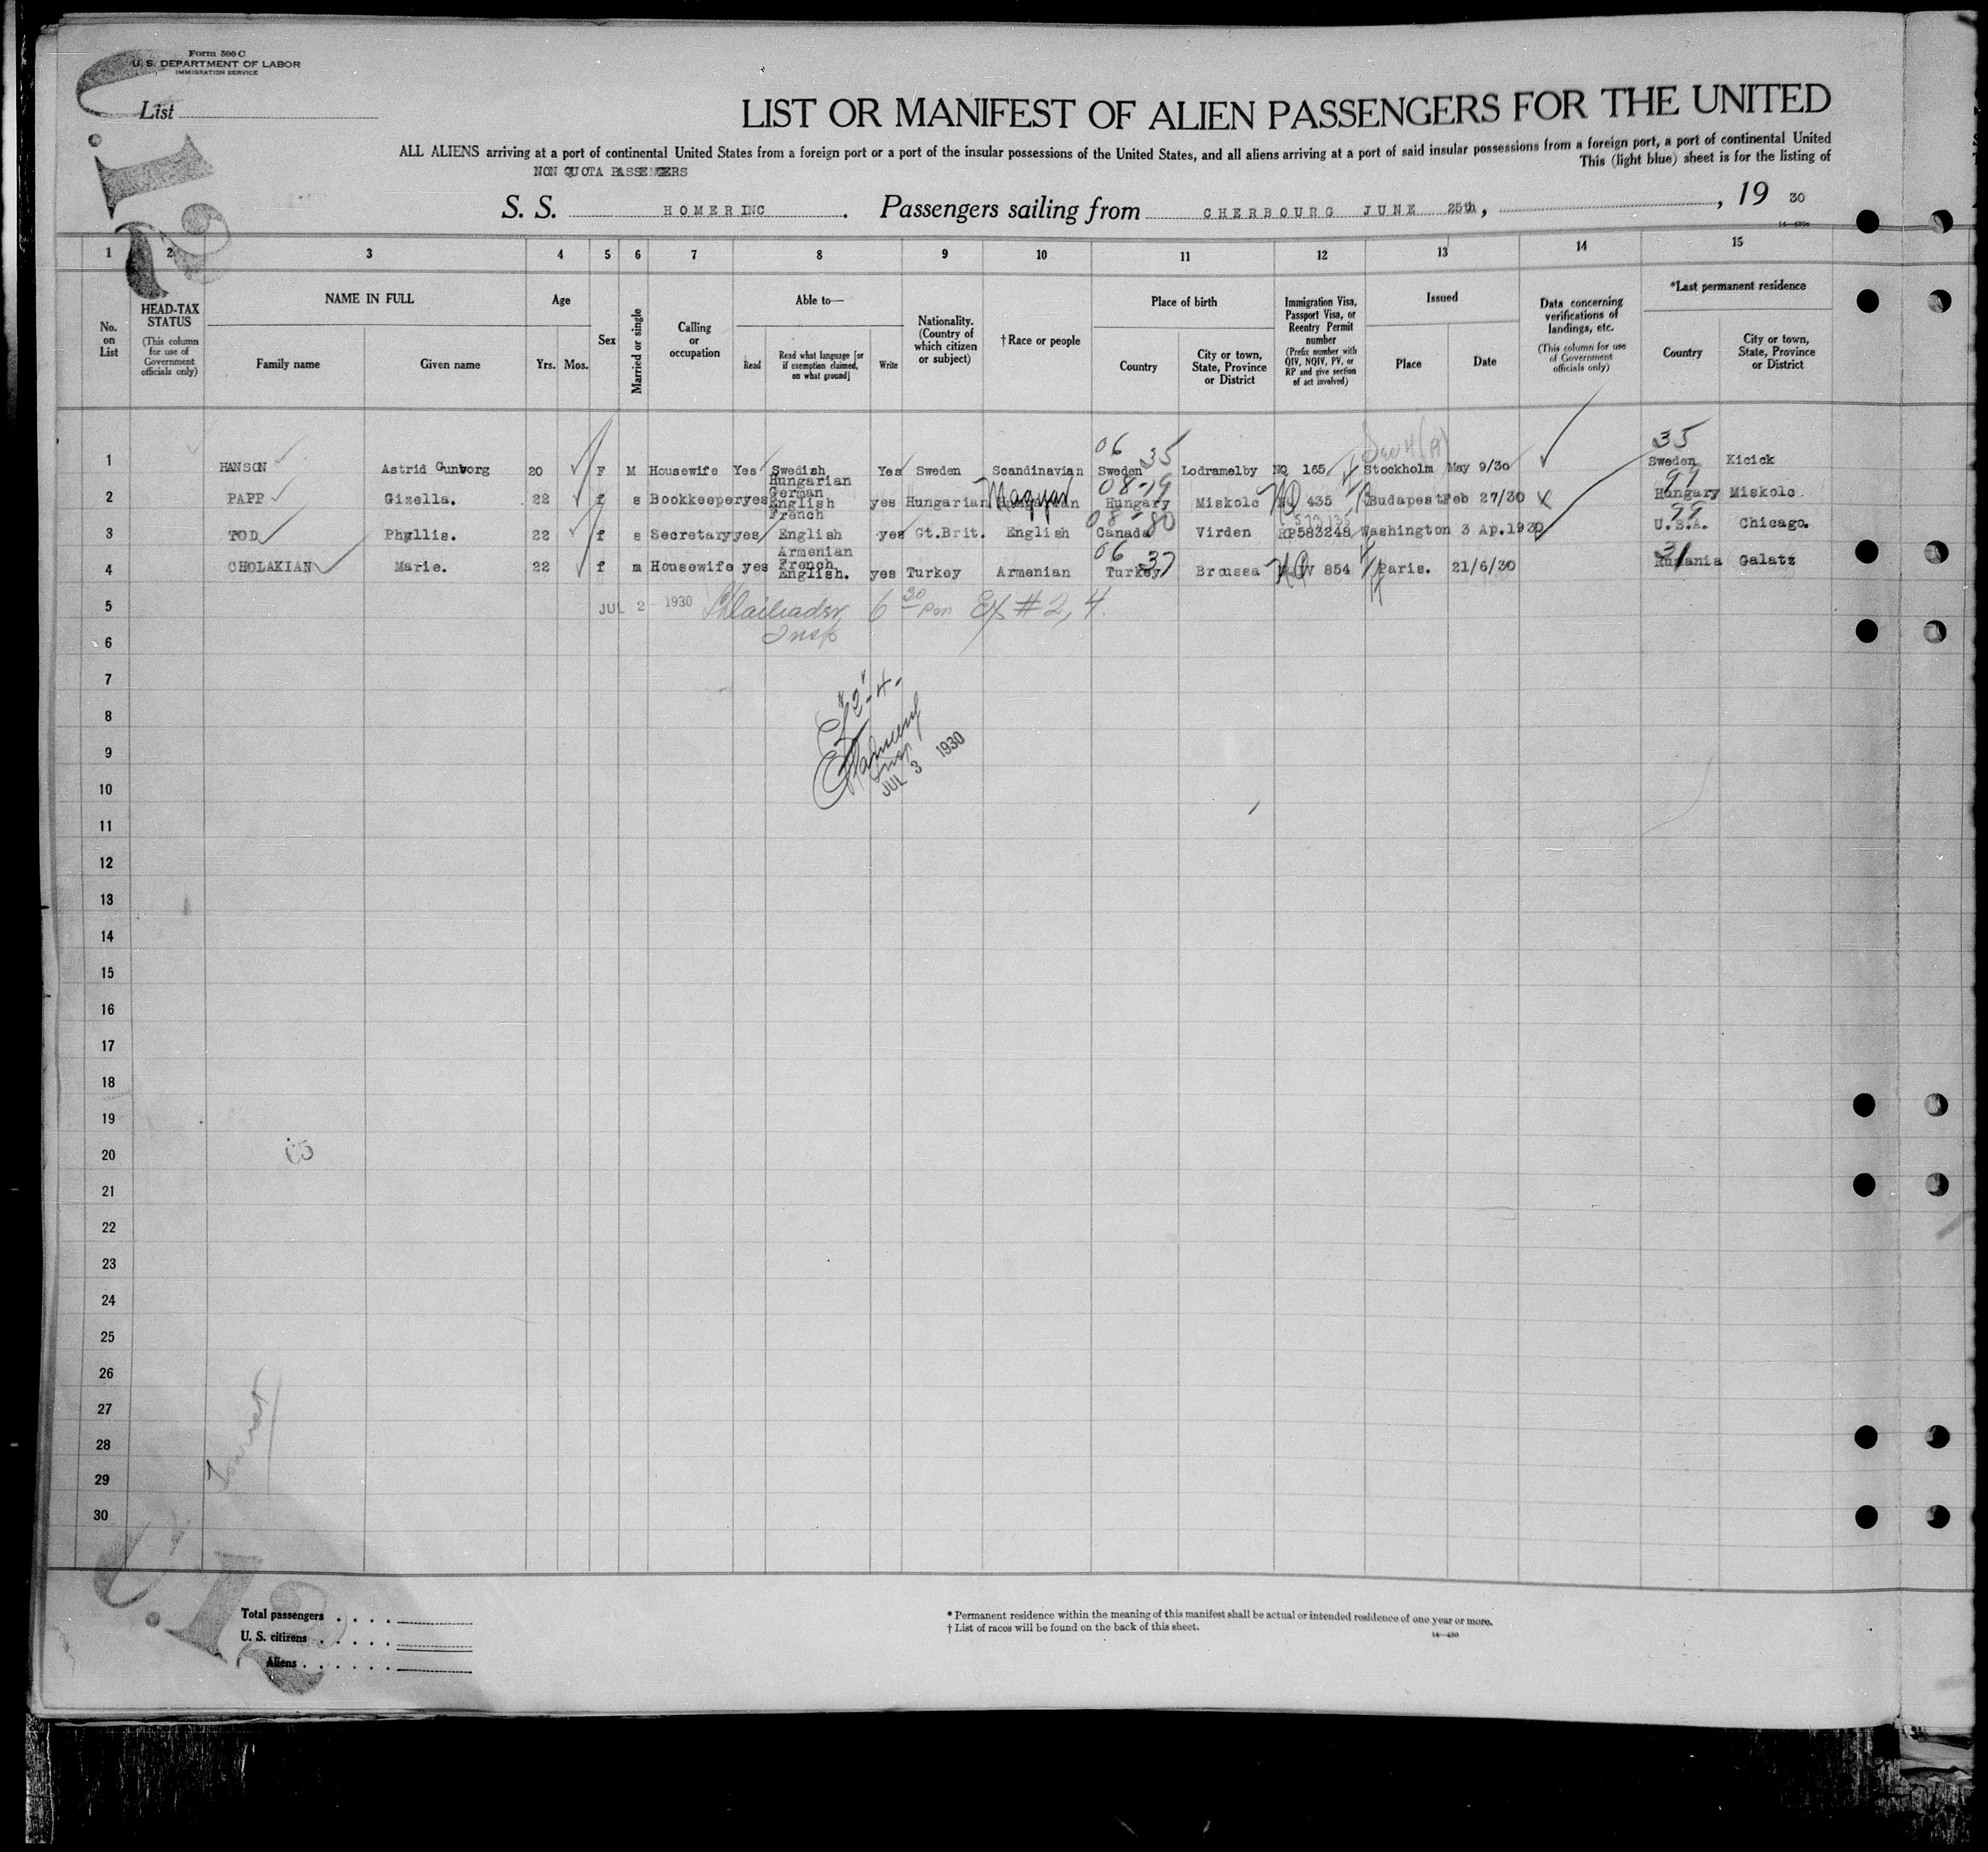 Form 500 C
U. S. DEPARTMENT OF LABOR
IMMIGRATION SERVICE
List
LIST OR MANIFEST OF ALIEN PASSENGERS FOR THE UNITED
ALL ALIENS arriving at a port of continental United States from a foreign port or a port of the insular possessions of the United States, and all aliens arriving at a port of said insular possessions from a foreign port, a port of continental United
This (light blue) sheet is for the listing of
NON QUOTA PASSENGERS
S. S. HOMERINC. Passengers sailing from CHERBOURG JUNE 25th, , 19 30
1 2 3 4 5 6 7 8 9 10 11 12 13 14 15
No. on List
HEAD-TAX STATUS
(This column for use of Government officials only)
NAME IN FULL
Family name
Given name
Age
Yrs. Mos.
Sex
Married or single
Calling or occupation
Able to—
Read
Read what language [or if exemption claimed, on what ground]
Write
Nationality. (Country of which citizen or subject)
† Race or people
Place of birth
Country
City or town, State, Province or District
Immigration Visa, Passport Visa, or Reentry Permit number
(Prefix number with QIV, NQIV, PV, or RP and give section of act involved)
Issued
Place
Date
Data concerning verifications of landings, etc.
(This column for use of Government officials only)
*Last permanent residence
Country
City or town, State, Province or District
06 35 35
1 HANSON Astrid Gunborg 20 F M Housewife Yes Swedish Yes Sweden Scandinavian Sweden Lodramelby NQ 165 Stockholm May 9/30 Sweden Kicick
08-19 99
2 PAPP Gizella. 22 f s Bookkeeper yes Hungarian German English yes Hungarian Magyar Hungary Miskolc NQ 435 Budapest Feb 27/30 Hungary Miskolc
08-80 99
3 TOD Phyllis. 22 f s Secretary yes French English yes Gt.Brit. English Canada Virden RP583248 Washington 3 Ap.1930 U.S.A. Chicago.
06 37 31
4 CHOLAKIAN Marie. 22 f m Housewife yes Armenian French English. yes Turkey Armenian Turkey Broussa 854 Paris. 21/6/30 Rumania Galatz
5 JUL 2 1930 6 30 pm Ex #2, 4.
Insp
6
7
#2-4-
8
9
Insp
JUL 3 1930
10
11
12
13
14
15
16
17
18
19
20
21
22
23
24
25
26
27
28
29
30
Total passengers
U. S. citizens
Aliens
* Permanent residence within the meaning of this manifest shall be actual or intended residence of one year or more.
† List of races will be found on the back of this sheet.
14—430